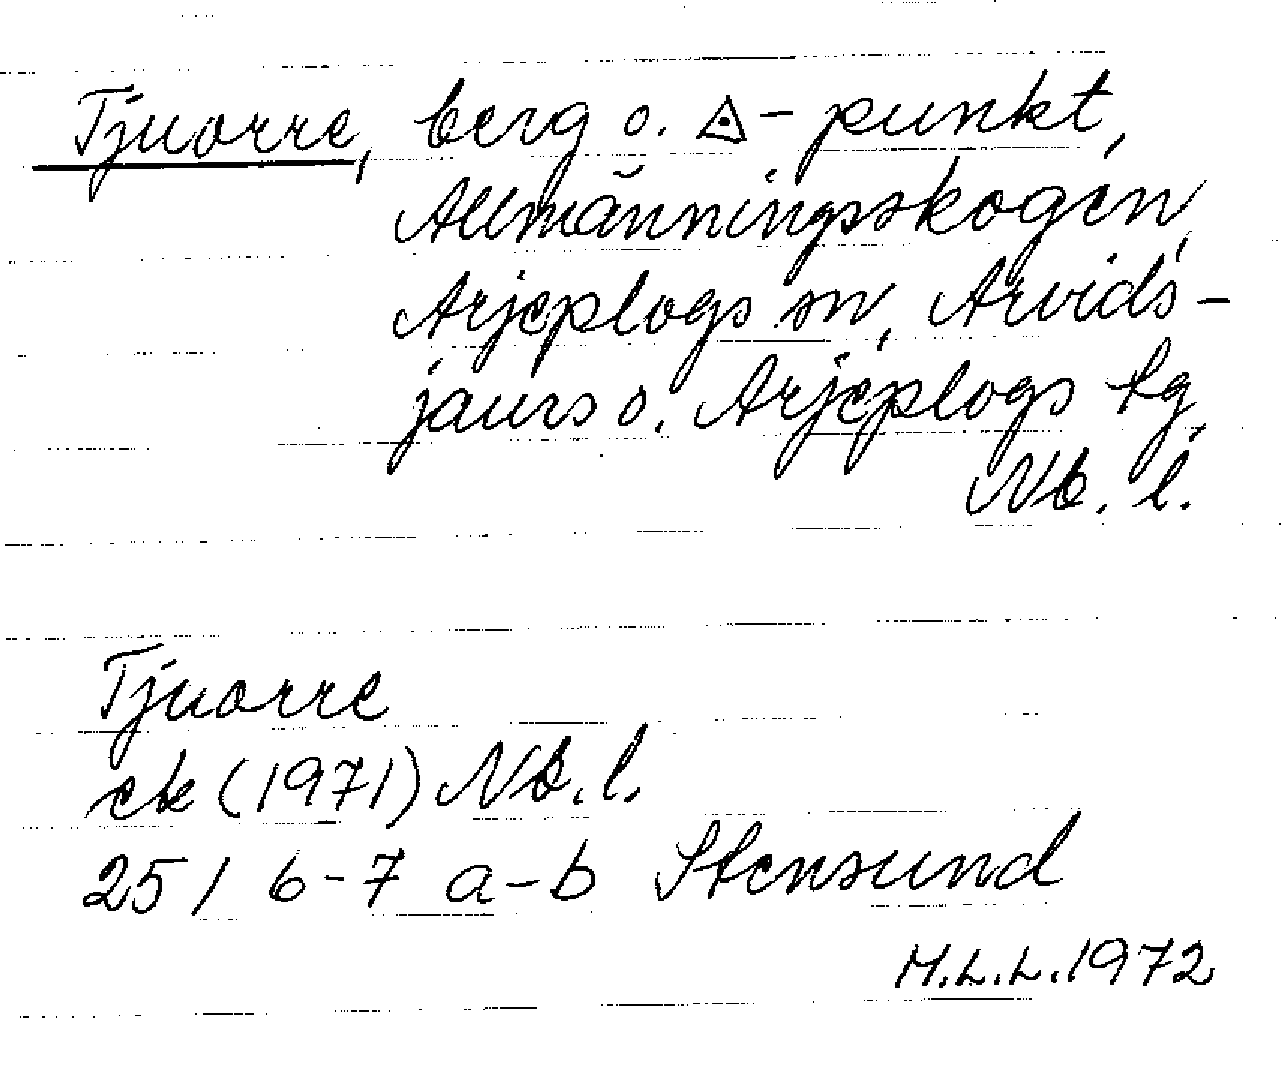 Tjuorre, berg o. △-punkt,
Allmänningsskogen,
Arjeplogs sn, Arvids-
jaurs o. Arjeplogs tg,
Nb. l.
Tjuorre
ek (1971) Nb. l.
25 I 6-7 a-b Stensund
M.L.L. 1972